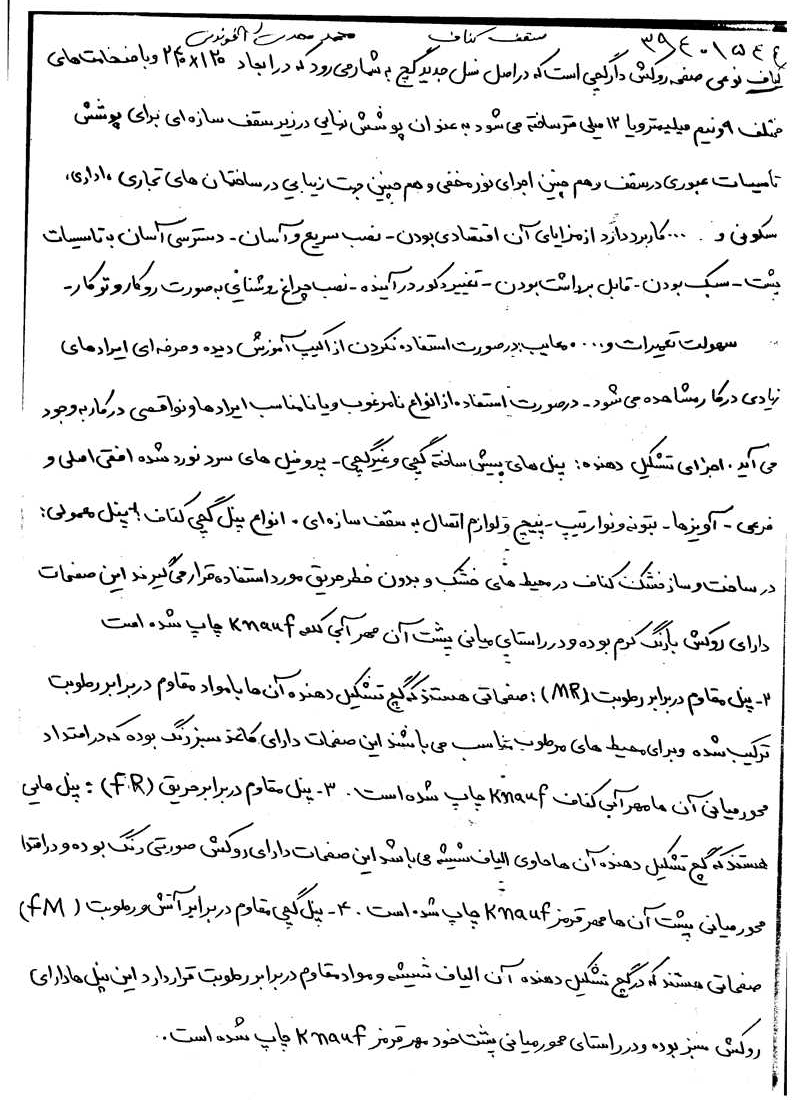 سقف کناف
کناف نوعی صفحه روکش دار گچی است که در اصل نسل جدید گچ به شمار می رود که در ابعاد ۱۲۰×۲۴۰ و با ضخامت های
مختلف ۹ ونیم میلیمتر و یا ۱۲ میلی متر ساخته می شود به عنوان پوشش نهایی در زیر سقف سازه ای برای پوشش
تاسیسات عبوری در سقف و هم چنین اجرای نور مخفی و هم چنین جهت زیبایی در ساختمان های تجاری ، اداری ،
سکونی و ... کاربرد دارد از مزایای آن اقتصادی بودن - نصب سریع و آسان - دسترسی آسان به تاسیسات
پشت - سبک بودن - قابل برداشت بودن - تغییر دکور در آینده - نصب چراغ روشنایی به صورت روکار و توکار -
سهولت تعمیرات و ... معایب: در صورت استفاده نکردن از اکیپ آموزش دیده و حرفه ای ایرادهای
زیادی در کار مشاهده می شود - در صورت استفاده از انواع نامرغوب و یا نامناسب ایرادها و نواقصی در کار به وجود
می آید . اجزای تشکیل دهنده : پنل های پیش ساخته گچی و غیر گچی - پروفیل های سرد نورد شده افقی اصلی و
فرعی - آویزها - بتونه و نوار تیپ - پیچ و لوازم اتصال به سقف سازه ای . انواع پنل گچی کناف : ۱- پنل معمولی :
در ساخت و ساز خشک کناف در محیط های خشک و بدون خطر حریق مورد استفاده قرار می گیرند این صفحات
دارای روکش با رنگ کرم بوده و در راستای میانی پشت آن مهر آبی Knauf چاپ شده است
۲- پنل مقاوم در برابر رطوبت (MR) : صفحاتی هستند که گچ تشکیل دهنده آن ها با مواد مقاوم در برابر رطوبت
ترکیب شده و برای محیط های مرطوب مناسب می باشند این صفحات دارای کاغذ سبز رنگ بوده که در امتداد
محور میانی آن ها مهر آبی کناف Knauf چاپ شده است . ۳- پنل مقاوم در برابر حریق (FR) : پنل هایی
هستند که گچ تشکیل دهنده آن ها حاوی الیاف شیشه می باشد این صفحات دارای روکش صورتی رنگ بوده و در امتدا
محور میانی پشت آن ها مهر قرمز Knauf چاپ شده است . ۴- پنل گچی مقاوم در برابر آتش و رطوبت (FM)
صفحاتی هستند که در گچ تشکیل دهنده آن الیاف شیشه و مواد مقاوم در برابر رطوبت قرار دارد این پنل ها دارای
روکش سبز بوده و در راستای محور میانی پشت خود مهر قرمز Knauf چاپ شده است .